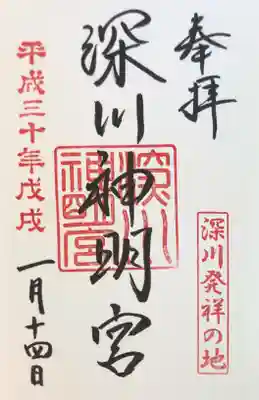 奉拝
深川発祥の地
深川神明宮
深川神明宮
平成三十年戊戌
一月十四日